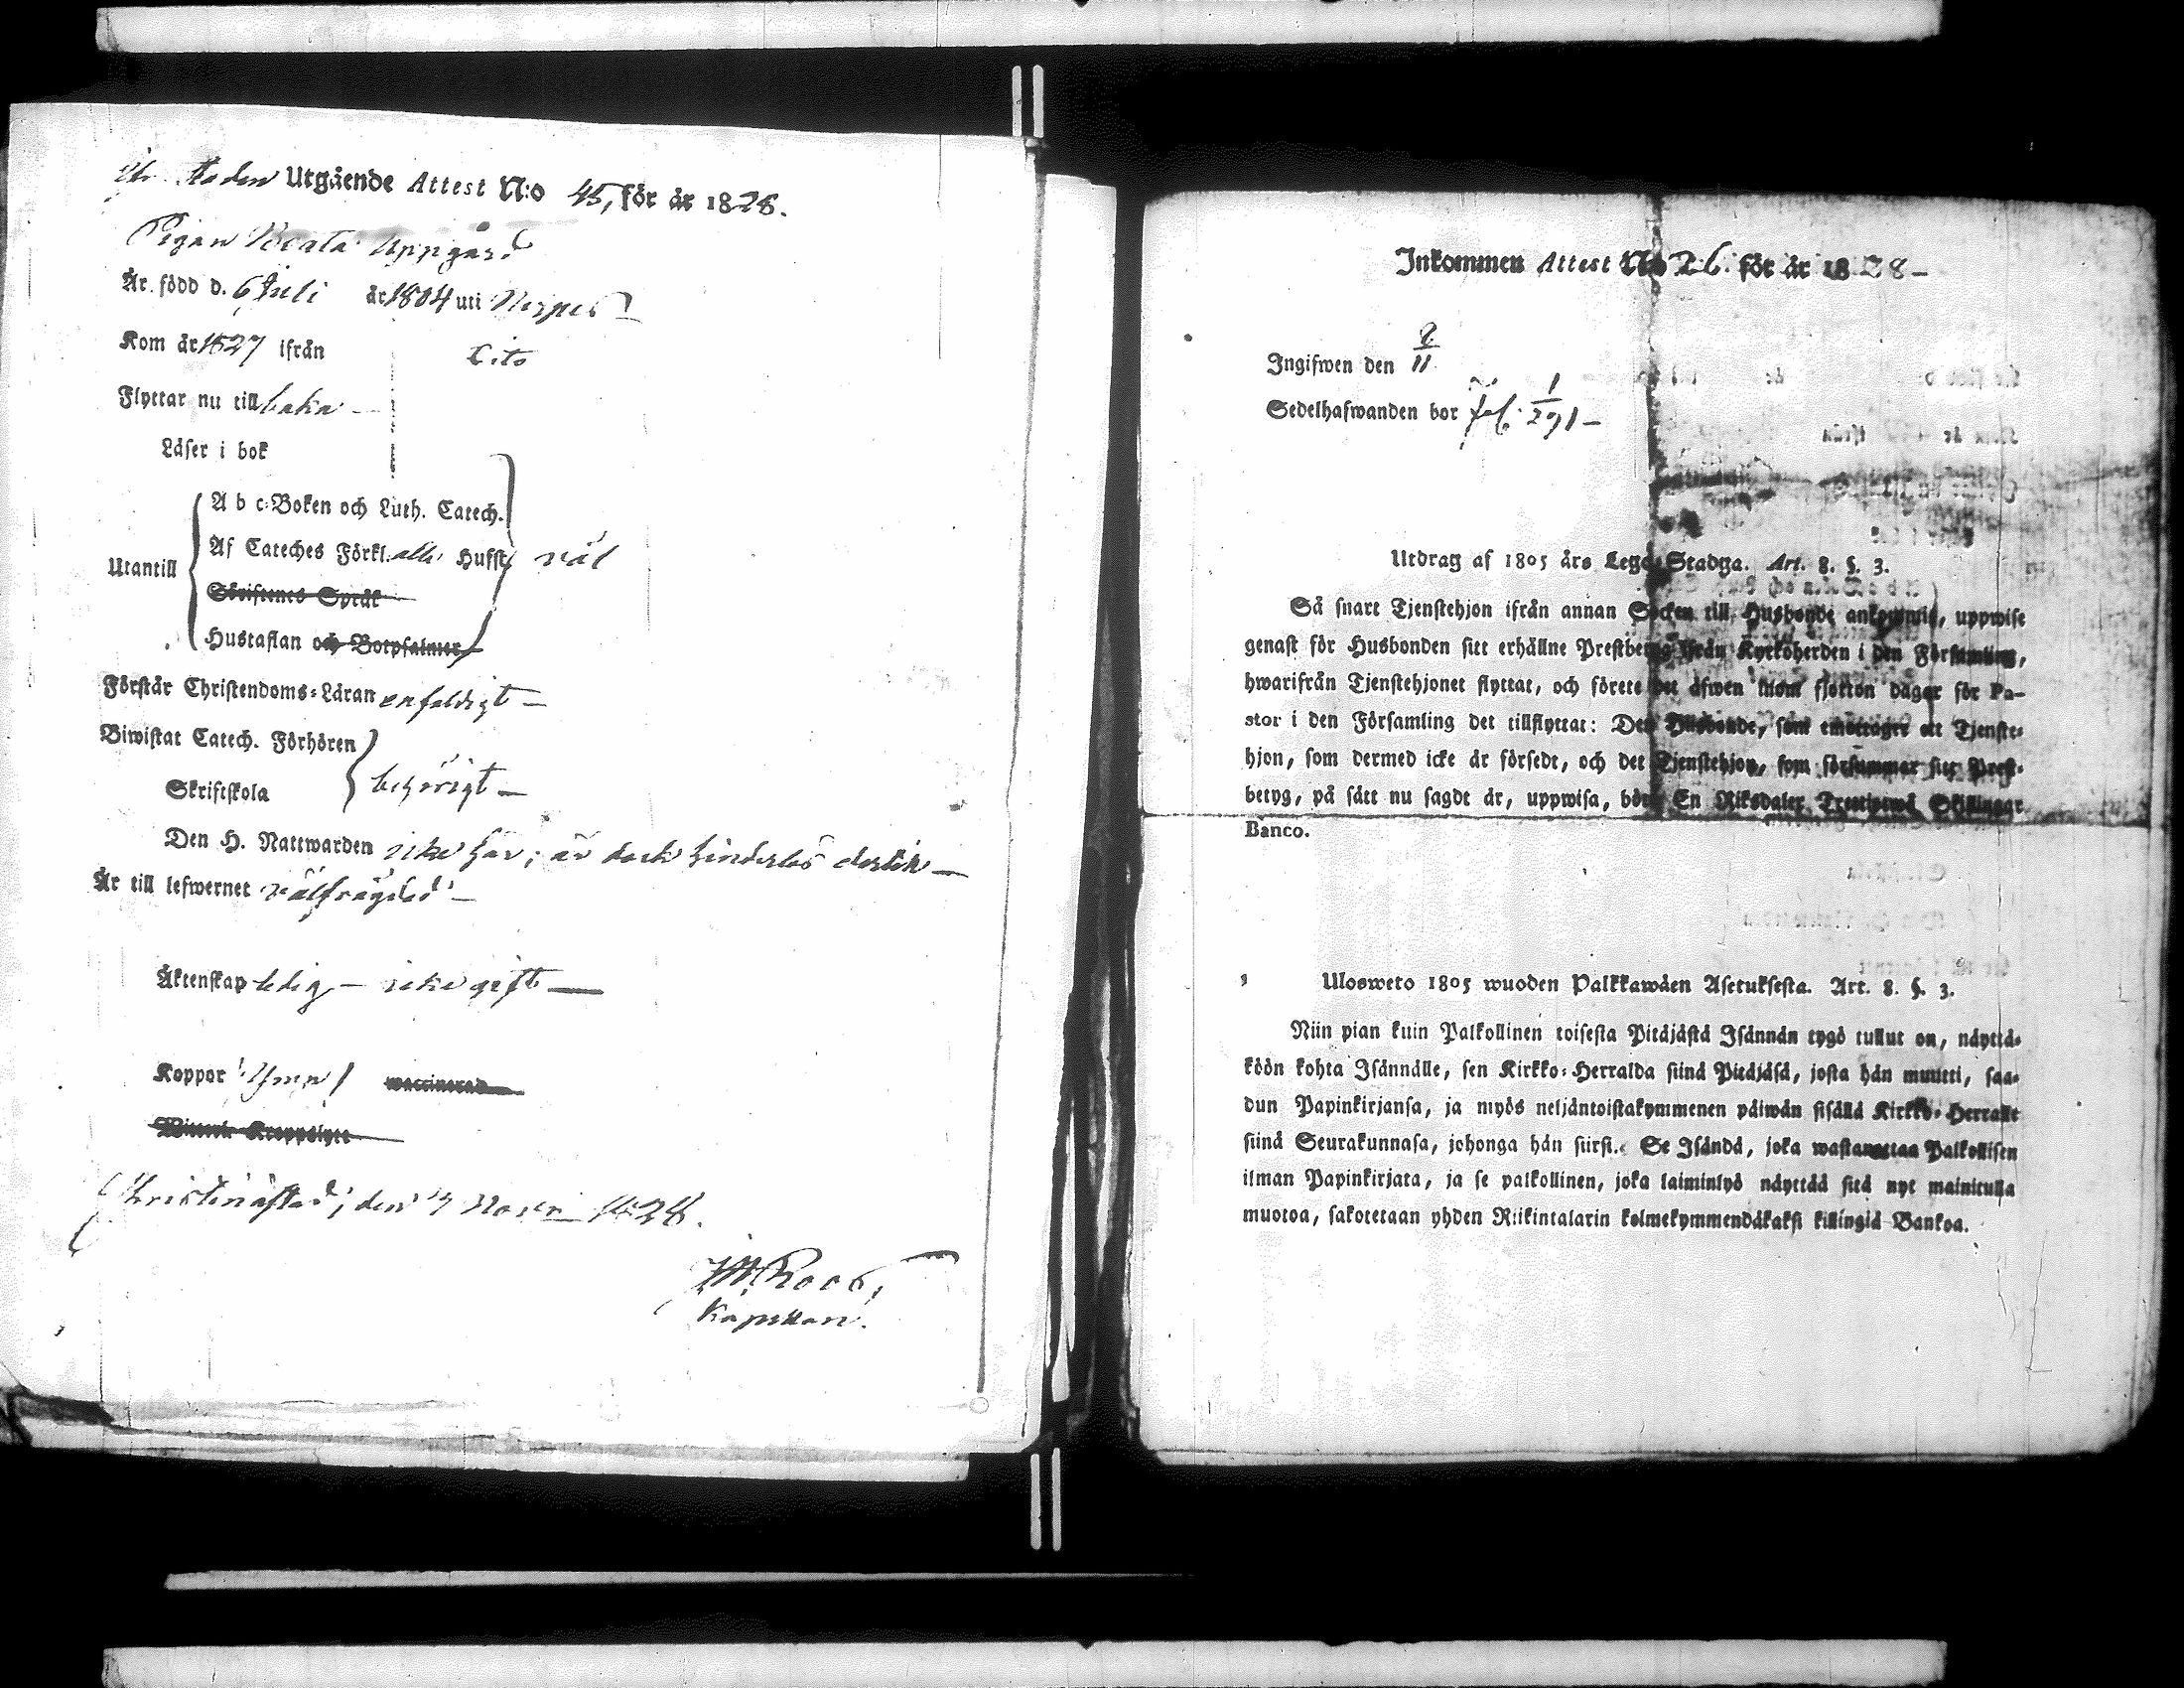 Staden Utgående Attest N:o 45, för år 1828.
Pigan Beata Uppgård
Är född d. 6 Juli år 1804 uti Nerpes
Kom år 1827 ifrån Dito
Flyttar nu till baka
Läser i bok
Utantill
A b c-Boken och Luth. Catech.
Af Cateches Förkl. alla Hufst väl
Skriftenes Språk
Hustaflan och Botpsalmer
Förstår Christendoms-Läran enfaldigt
Biwistat Catech. Förhören
Skriftskola behörigt
Den H. Nattwarden icke här; är dock hinderlös dertill
Är till lefwernet välfrägdad
Äktenskap ledig — icke gift
Koppor waccinerad
Kroppslyte
Christinæstad, den Novemb 1828.
Roos,
Kapellan.
Inkommen Attest N:o 26. för år 1828
Ingifwen den 8/11
Sedelhafwanden bor fol. 1/291
Utdrag af 1805 års Lego-Stadga. Art. 8. §. 3.
Så snart Tjenstehjon ifrån annan Socken till Husbonde ankommit, uppwise
genast för Husbonden sitt erhållne Prestbetyg ifrån Kyrkoherden i den Församling,
hwarifrån Tjenstehjonet flyttat, och förete det äfwen inom fjorton dagar för Pa-
stor i den Församling det tillflyttat: Den Husbonde, som emottager ett Tjenste-
hjon, som dermed icke är försedt, och det Tjenstehjon, som försummar sitt Prest-
betyg, på sätt nu sagdt är, uppwisa, böte En Riksdaler Trettiotwå Skillingar
Banco.
Ulosweto 1805 wuoden Palkkawäen Asetuksesta. Art. 8. §. 3.
Niin pian kuin Palkollinen toisesta Pitäjästä Isännän tygö tullut on, näyttä-
köön kohta Isännälle, sen Kirkko-Herralda siinä Pitäjäsä, josta hän muutti, saa-
dun Papinkirjansa, ja myös neljäntoistakymmenen päiwän sisällä Kirkko-Herralle
siinä Seurakunnasa, johonga hän siirsi. Se Isändä, joka wastanottaa Palkollisen
ilman Papinkirjata, ja se palkollinen, joka laiminlyö näyttää sitä nyt mainitulla
muotoa, sakotetaan yhden Riikintalarin kolmekymmendäkaksi killingiä Bankoa.